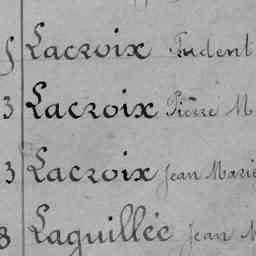 Lacroix
3 Lacroix Pierre M
3 Lacroix Jean Marie
8 Laguillée Jean M